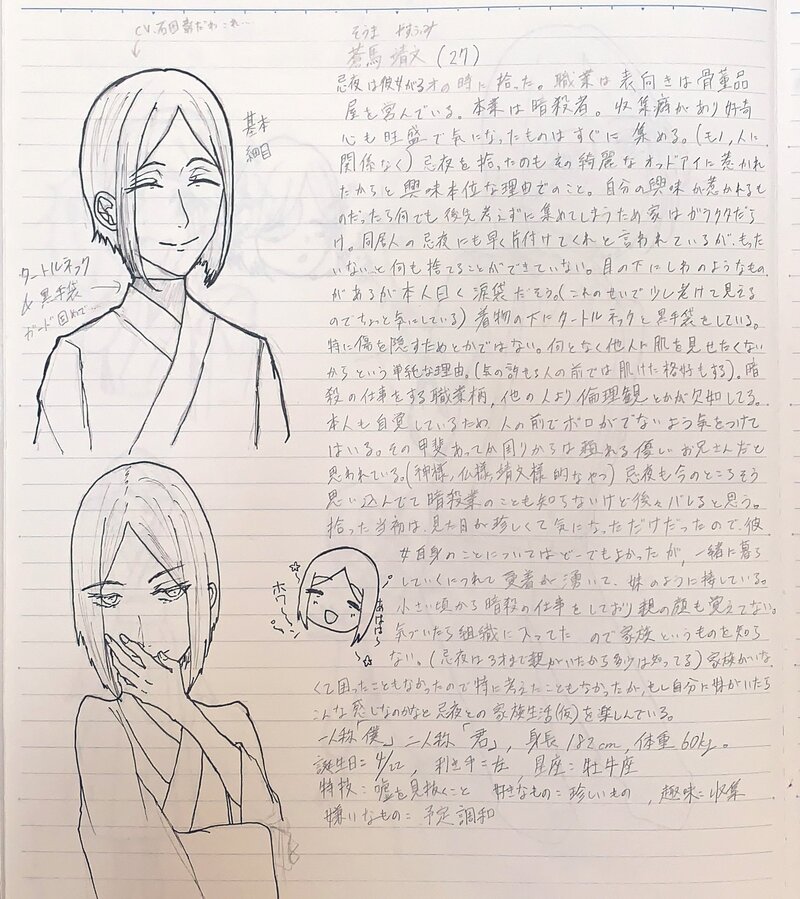 CV.石田彰だわこれ…
そうま やすふみ
蒼馬 靖文(27)
基本
細目
タートルネック
& 黒手袋
ガード固めで…
忌夜は彼女が3才の時に拾った。職業は表向きは骨董品
屋を営んでいる。本業は暗殺者。収集癖があり好奇
心も旺盛で気になったものはすぐに集める。(モノ,人に
関係なく)忌夜を拾ったのもその綺麗なオッドアイに惹かれ
たからと興味本位な理由でのこと。自分の興味が惹かれるも
のだったら何でも後先考えずに集めてしまうため家はガラクタだら
け。同居人の忌夜にも早く片付けてくれと言われているが、もった
いないと何も捨てることができていない。目の下にしわのようなもの
があるが本人曰く涙袋だそう。(これのせいで少し老けて見える
のでちょっと気にしている)着物の下にタートルネックと黒手袋をしている。
特に傷を隠すためとかではない。何となく他人に肌を見せたくない
からという単純な理由。(気の許せる人の前では肌けた格好もする)。暗
殺の仕事をする職業柄,他の人より倫理観とかが欠如してる。
本人も自覚しているため人の前でボロがでないよう気をつけて
はいる。その甲斐あってか周りからは頼れる優しいお兄さんだと
思われている。(神様,仏様,靖文様的なやつ)忌夜も今のところそう
思い込んでて暗殺業のことも知らないけど後々バレると思う。
拾った当初は見た目が珍しくて気になっただけだったので,彼
女自身のことについてはどーでもよかったが,一緒に暮ら
していくにつれて愛着が湧いて,妹のように接している。
小さい頃から暗殺の仕事をしており親の顔も覚えてない。
気づいたら組織に入ってた ので家族というものを知ら
ない。(忌夜は3才まで親がいたから多少は知ってる)家族がいな
くて困ったこともなかったので特に考えたこともなかったが,もし自分に妹がいたら
こんな感じなのかなと忌夜との家族生活(仮)を楽しんでいる。
一人称「僕」二人称「君」,身長182cm,体重60kg。
誕生日=4/22 , 利き手=左, 星座=牡牛座
特技=嘘を見抜くこと 好きなもの=珍しいもの ,趣味=収集
嫌いなもの=予定調和
ホワ〜ン
あはは〜